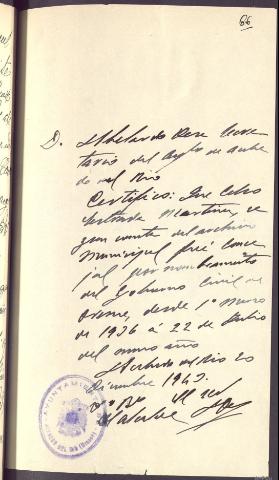 66
D. Abelardo Pere Secre-
tario del Ayto de Acebe-
do del Rio
Certifico: Que Celso
Martinez, se-
gun consta del archivo
Municipal fué conce-
jal por nombramiento
del Gobierno Civil de
Orense, desde 1º Marzo
de 1936 á 22 de Julio
del mismo año
Acebedo del Rio 20
Diciembre 1943.
Vº Bº El Sec
Alcalde
AYUNTAMIENTO
ACEBEDO DEL RIO (Orense)